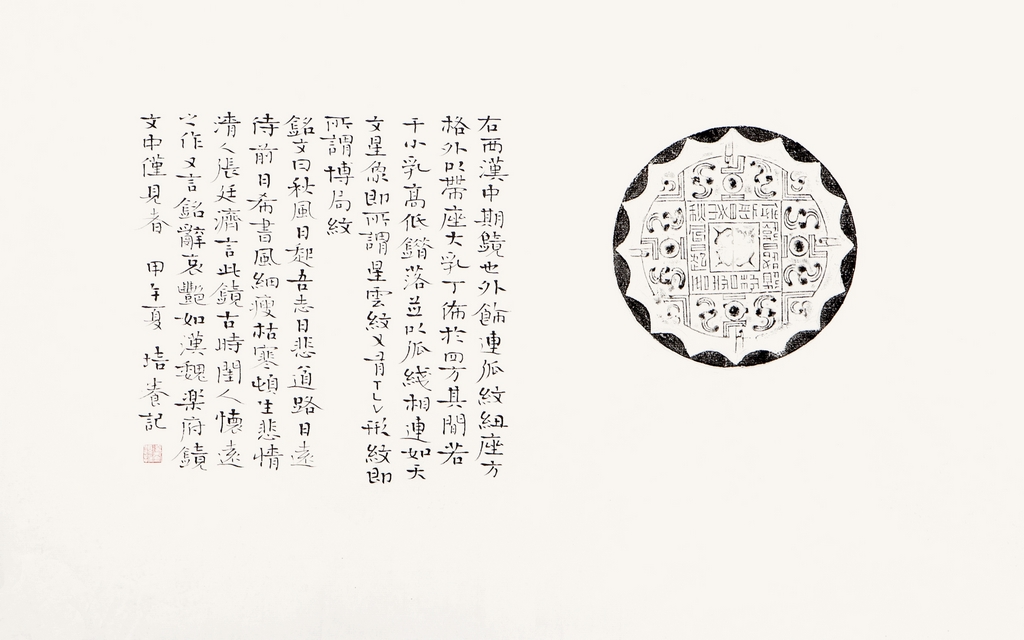 右西漢中期鏡也外飾連弧紋紐座方
格外以帶座大乳丁佈於四方其間若
干小乳高低錯落並以弧綫相連如天
文星像即所謂星雲紋又有TLV形紋即
所謂博局紋
銘文曰秋風日起吾志日悲道路日遠
待前日希書風細瘦枯寒頓生悲情
清人張廷濟言此鏡古時閨人懷遠
之作又言銘辭哀艷如漢魏楽府鏡
文中僅見者 甲午夏 培養記